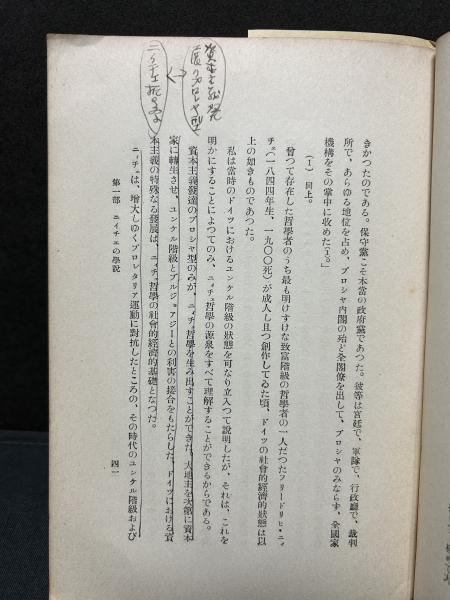 きかつたのである。保守黨こそ本當の政府黨であつた。彼等は宮廷で、軍隊で、行政廳で、裁判
所で、あらゆる地位を占め、プロシヤ内閣の殆ど全閣僚を出して、プロシヤのみならず、全國家
機構をその掌中に收めた(1)。」
(1) 同上。
曾つて存在した哲學者のうち最も明けすけな致富階級の哲學者の一人だつたフリードリヒ・ニィ
チェ(一八四四年生、一九〇〇死)が成人し且つ創作してゐた頃、ドイツの社會的經濟的狀態は以
上の如きものであつた。
私は當時のドイツにおけるユンケル階級の狀態を可なり立入つて說明したが、それは、これを
明かにすることによつてのみ、ニィチェ哲學の源泉をすべて理解することができるからである。
資本主義發達のプロシヤ型のみが、ニィチェ哲學を生み出すことができた。大地主を次第に資本
家に轉生させ、ユンケル階級とブルジョアジーとの利害の接合をもたらした、ドイツにおける資
本主義の特殊なる發展は、ニィチェ哲學の社會的經濟的基礎となつた。
ニィチェは、增大しゆくプロレタリア運動に對抗したところの、その時代のユンケル階級および
第一部 ニイチエの學說
四一
資本主義發